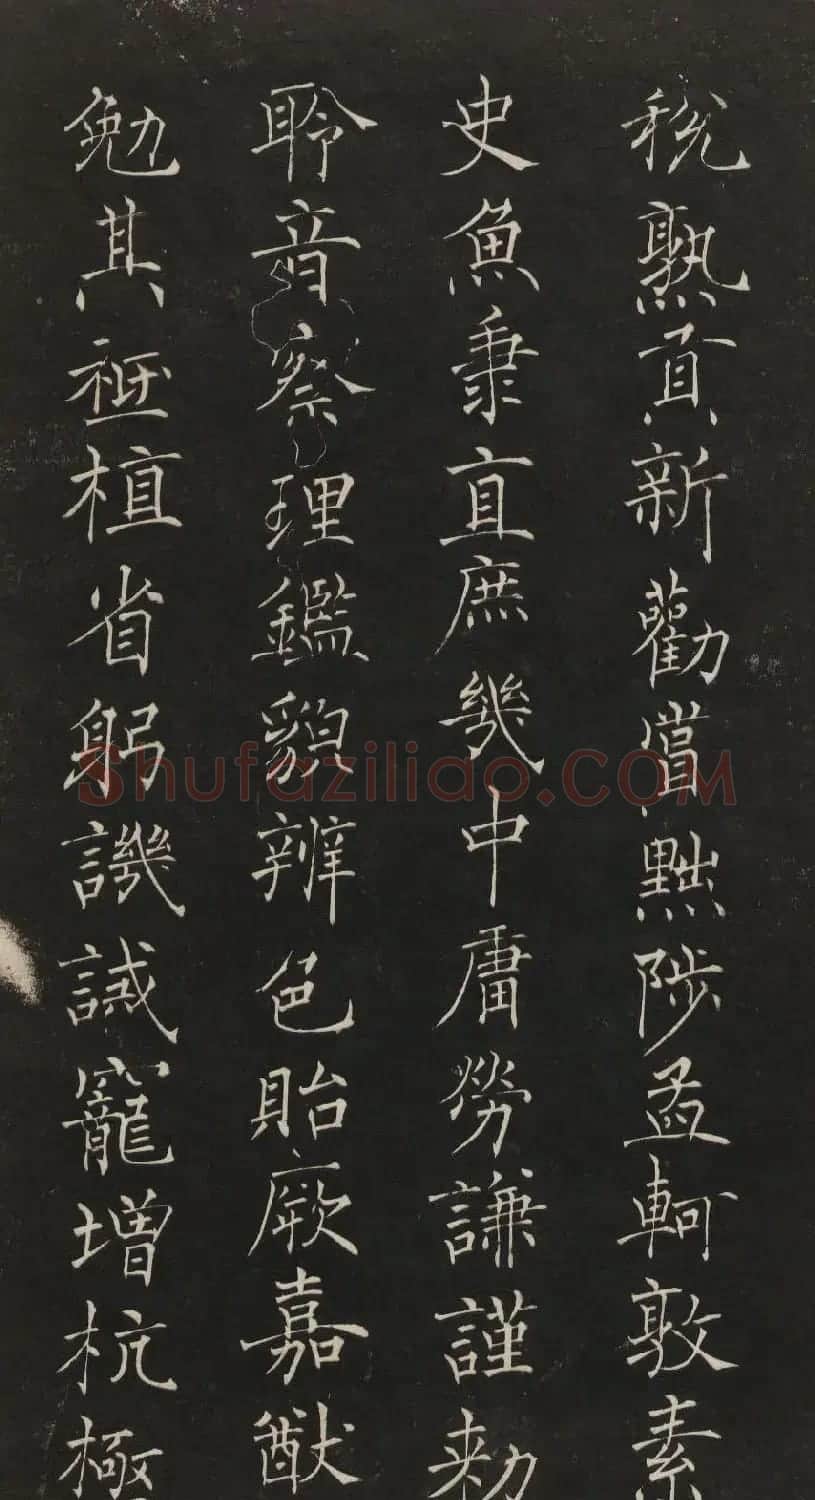 稅熟貢新勸賞黜陟孟軻敦素
史魚秉直庶幾中庸勞謙謹勅
聆音察理鑑貌辨色貽厥嘉猷
勉其祗植省躬譏誡寵增抗極
Shufaziliao.COM